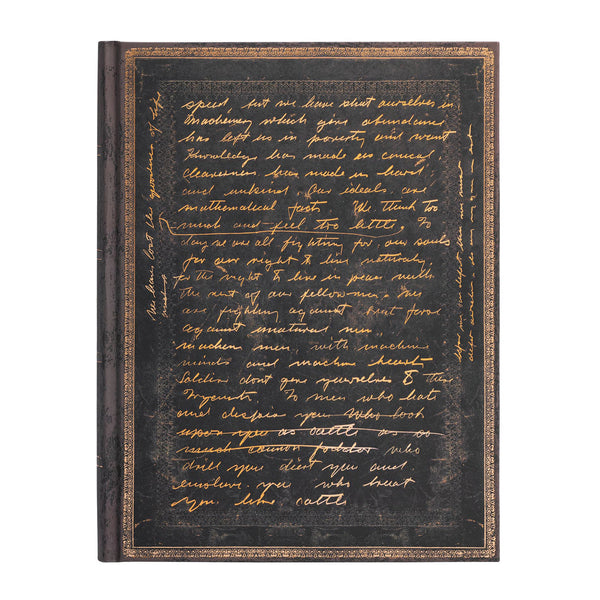 speed, but we have shut ourselves in
Machinery which gives abundance
has left us in poverty and want
Knowledge has made us cynical,
cleverness has made us hard
and unkind. Our ideals are
mathematical facts. We think too
much and feel too little. To
day we are all fighting for our souls
for our right to live naturally,
for the right to live in peace with
the rest of our fellow-men. We
are fighting against
against unnatural men,
machine men, with machine
minds and machine hearts
Soldiers dont give yourselves to these
To men who hate
and despise you who look
upon you as cattle as so
much cannon fodder who
drill you diet you and
enslave you who treat
you like cattle
We have lost the goodness of life